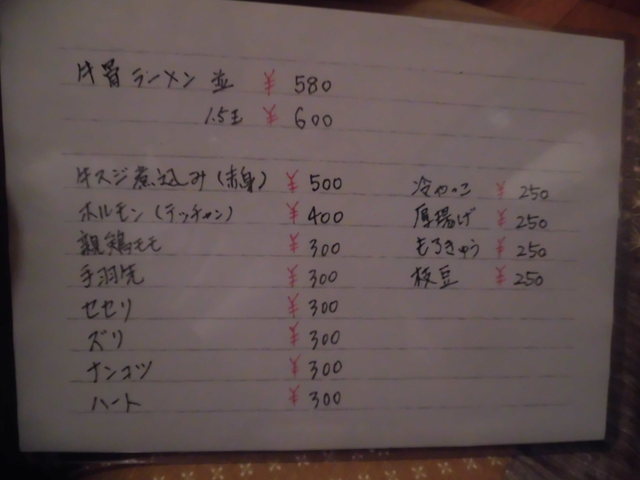 牛骨ラーメン 並 ¥ 580
1.5玉 ¥ 600
牛スジ煮込み(赤身) ¥ 500
ホルモン(テッチャン) ¥ 400
親鶏モモ ¥ 300
手羽先 ¥ 300
セセリ ¥ 300
ズリ ¥ 300
ナンコツ ¥ 300
ハート ¥ 300
冷やっこ ¥ 250
厚揚げ ¥ 250
もろきゅう ¥ 250
枝豆 ¥ 250